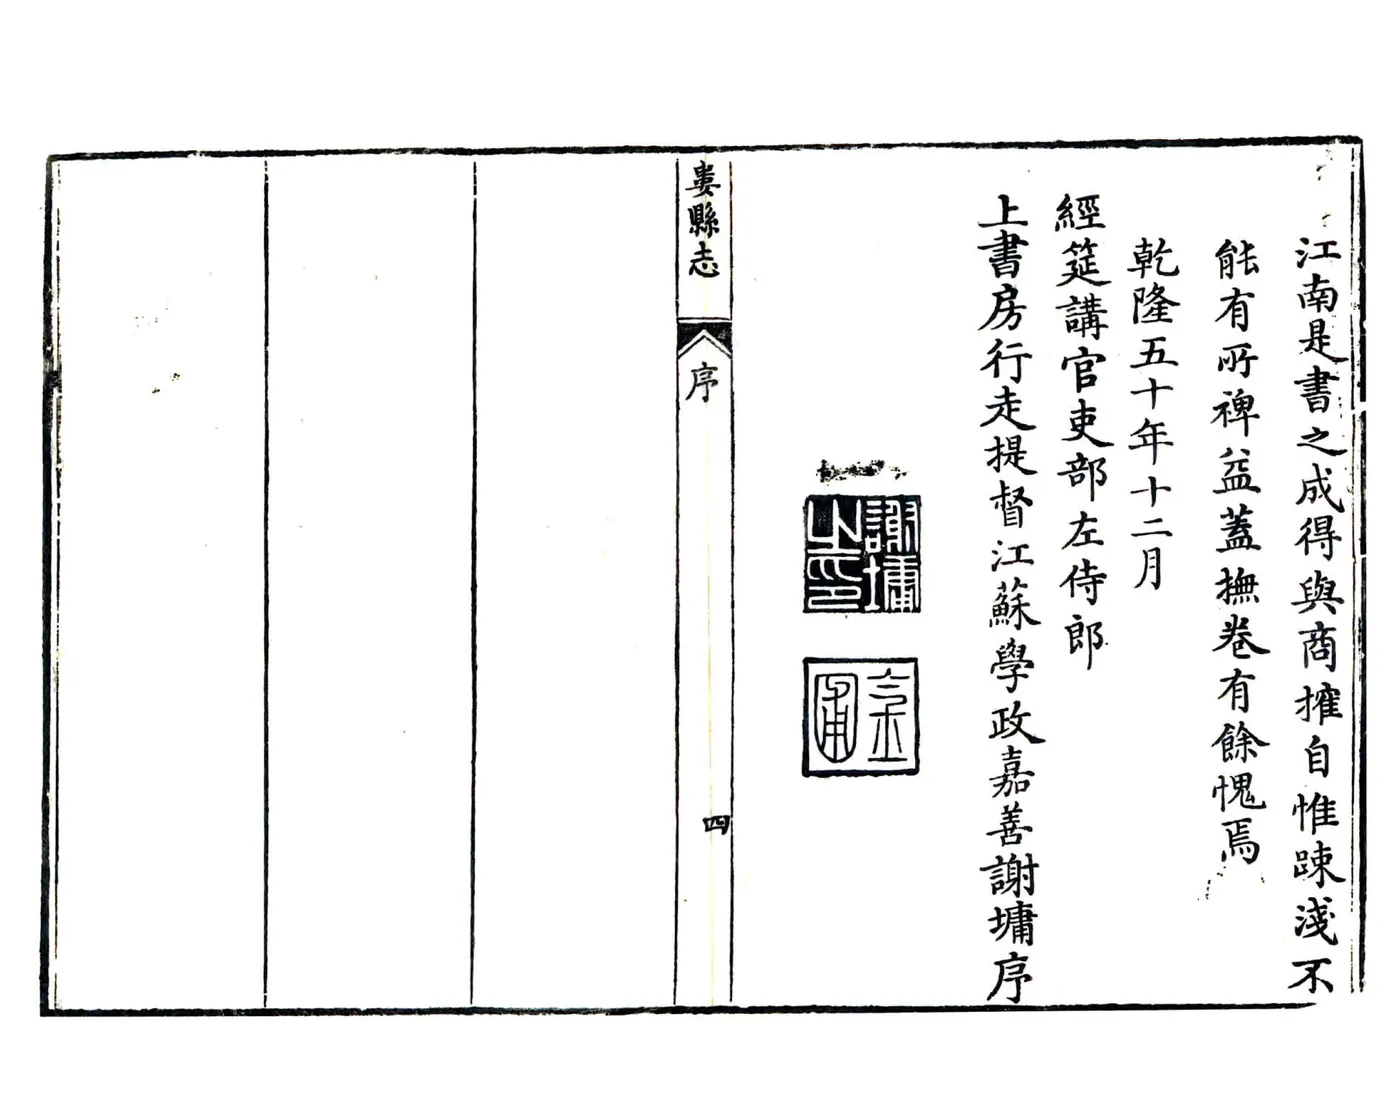 江南是書之成得與商搉自惟踈淺不
能有所裨益蓋撫卷有餘愧焉
乾隆五十年十二月
經筵講官吏部左侍郎
上書房行走提督江蘇學政嘉善謝墉序
謝墉之印
金圃
婁縣志
序
四